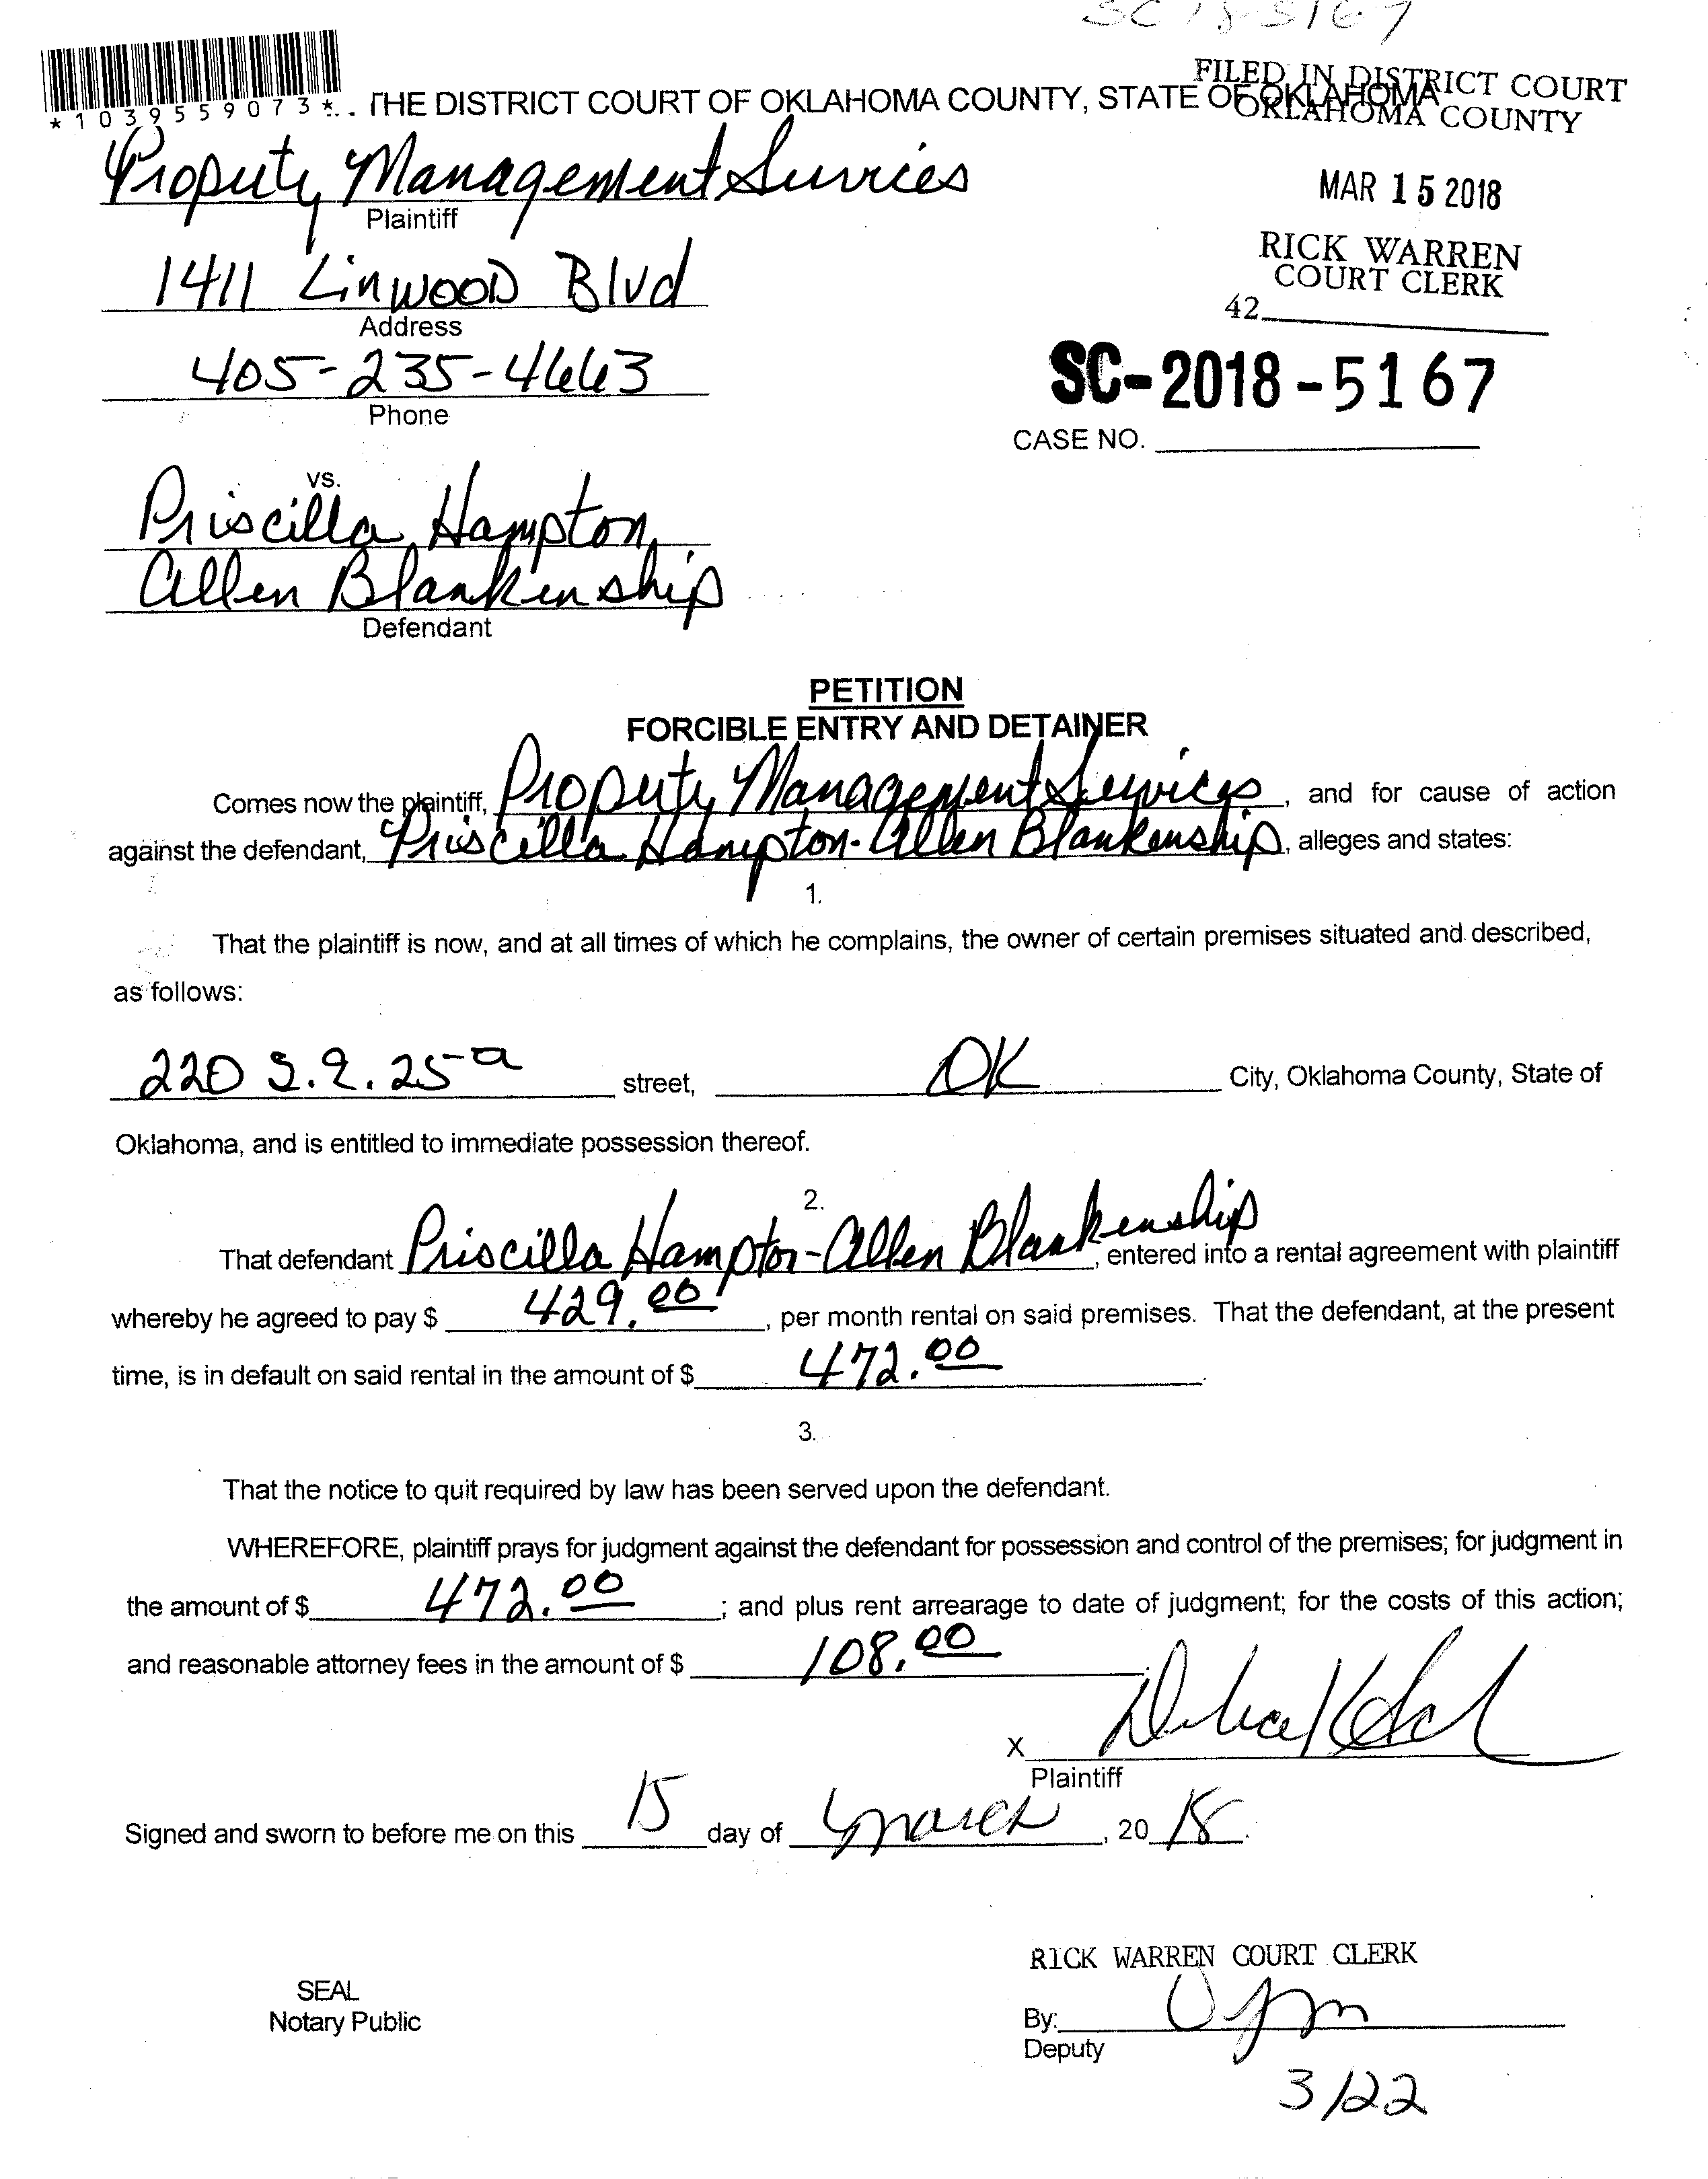 SC 18-5167
*1039559073*
THE DISTRICT COURT OF OKLAHOMA COUNTY, STATE OF OKLAHOMA
FILED IN DISTRICT COURT
OKLAHOMA COUNTY
Property Management Services
Plaintiff
MAR 15 2018
1411 Linwood Blvd
Address
RICK WARREN
COURT CLERK
42
405-235-4663
Phone
SC-2018-5167
CASE NO.
vs.
Priscilla Hampton
Allen Blankenship
Defendant
PETITION
FORCIBLE ENTRY AND DETAINER
Comes now the plaintiff, Property Management Services, and for cause of action
against the defendant, Priscilla Hampton-Allen Blankenship, alleges and states:
1.
That the plaintiff is now, and at all times of which he complains, the owner of certain premises situated and described,
as follows:
220 S.E. 25-a street, OK City, Oklahoma County, State of
Oklahoma, and is entitled to immediate possession thereof.
2.
That defendant Priscilla Hampton-Allen Blankenship, entered into a rental agreement with plaintiff
whereby he agreed to pay $ 429.00, per month rental on said premises. That the defendant, at the present
time, is in default on said rental in the amount of $ 472.00.
3.
That the notice to quit required by law has been served upon the defendant.
WHEREFORE, plaintiff prays for judgment against the defendant for possession and control of the premises; for judgment in
the amount of $ 472.00; and plus rent arrearage to date of judgment; for the costs of this action;
and reasonable attorney fees in the amount of $ 108.00.
X
Plaintiff
Signed and sworn to before me on this 15 day of March, 20 18.
RICK WARREN COURT CLERK
SEAL
Notary Public
By:
Deputy
3/22